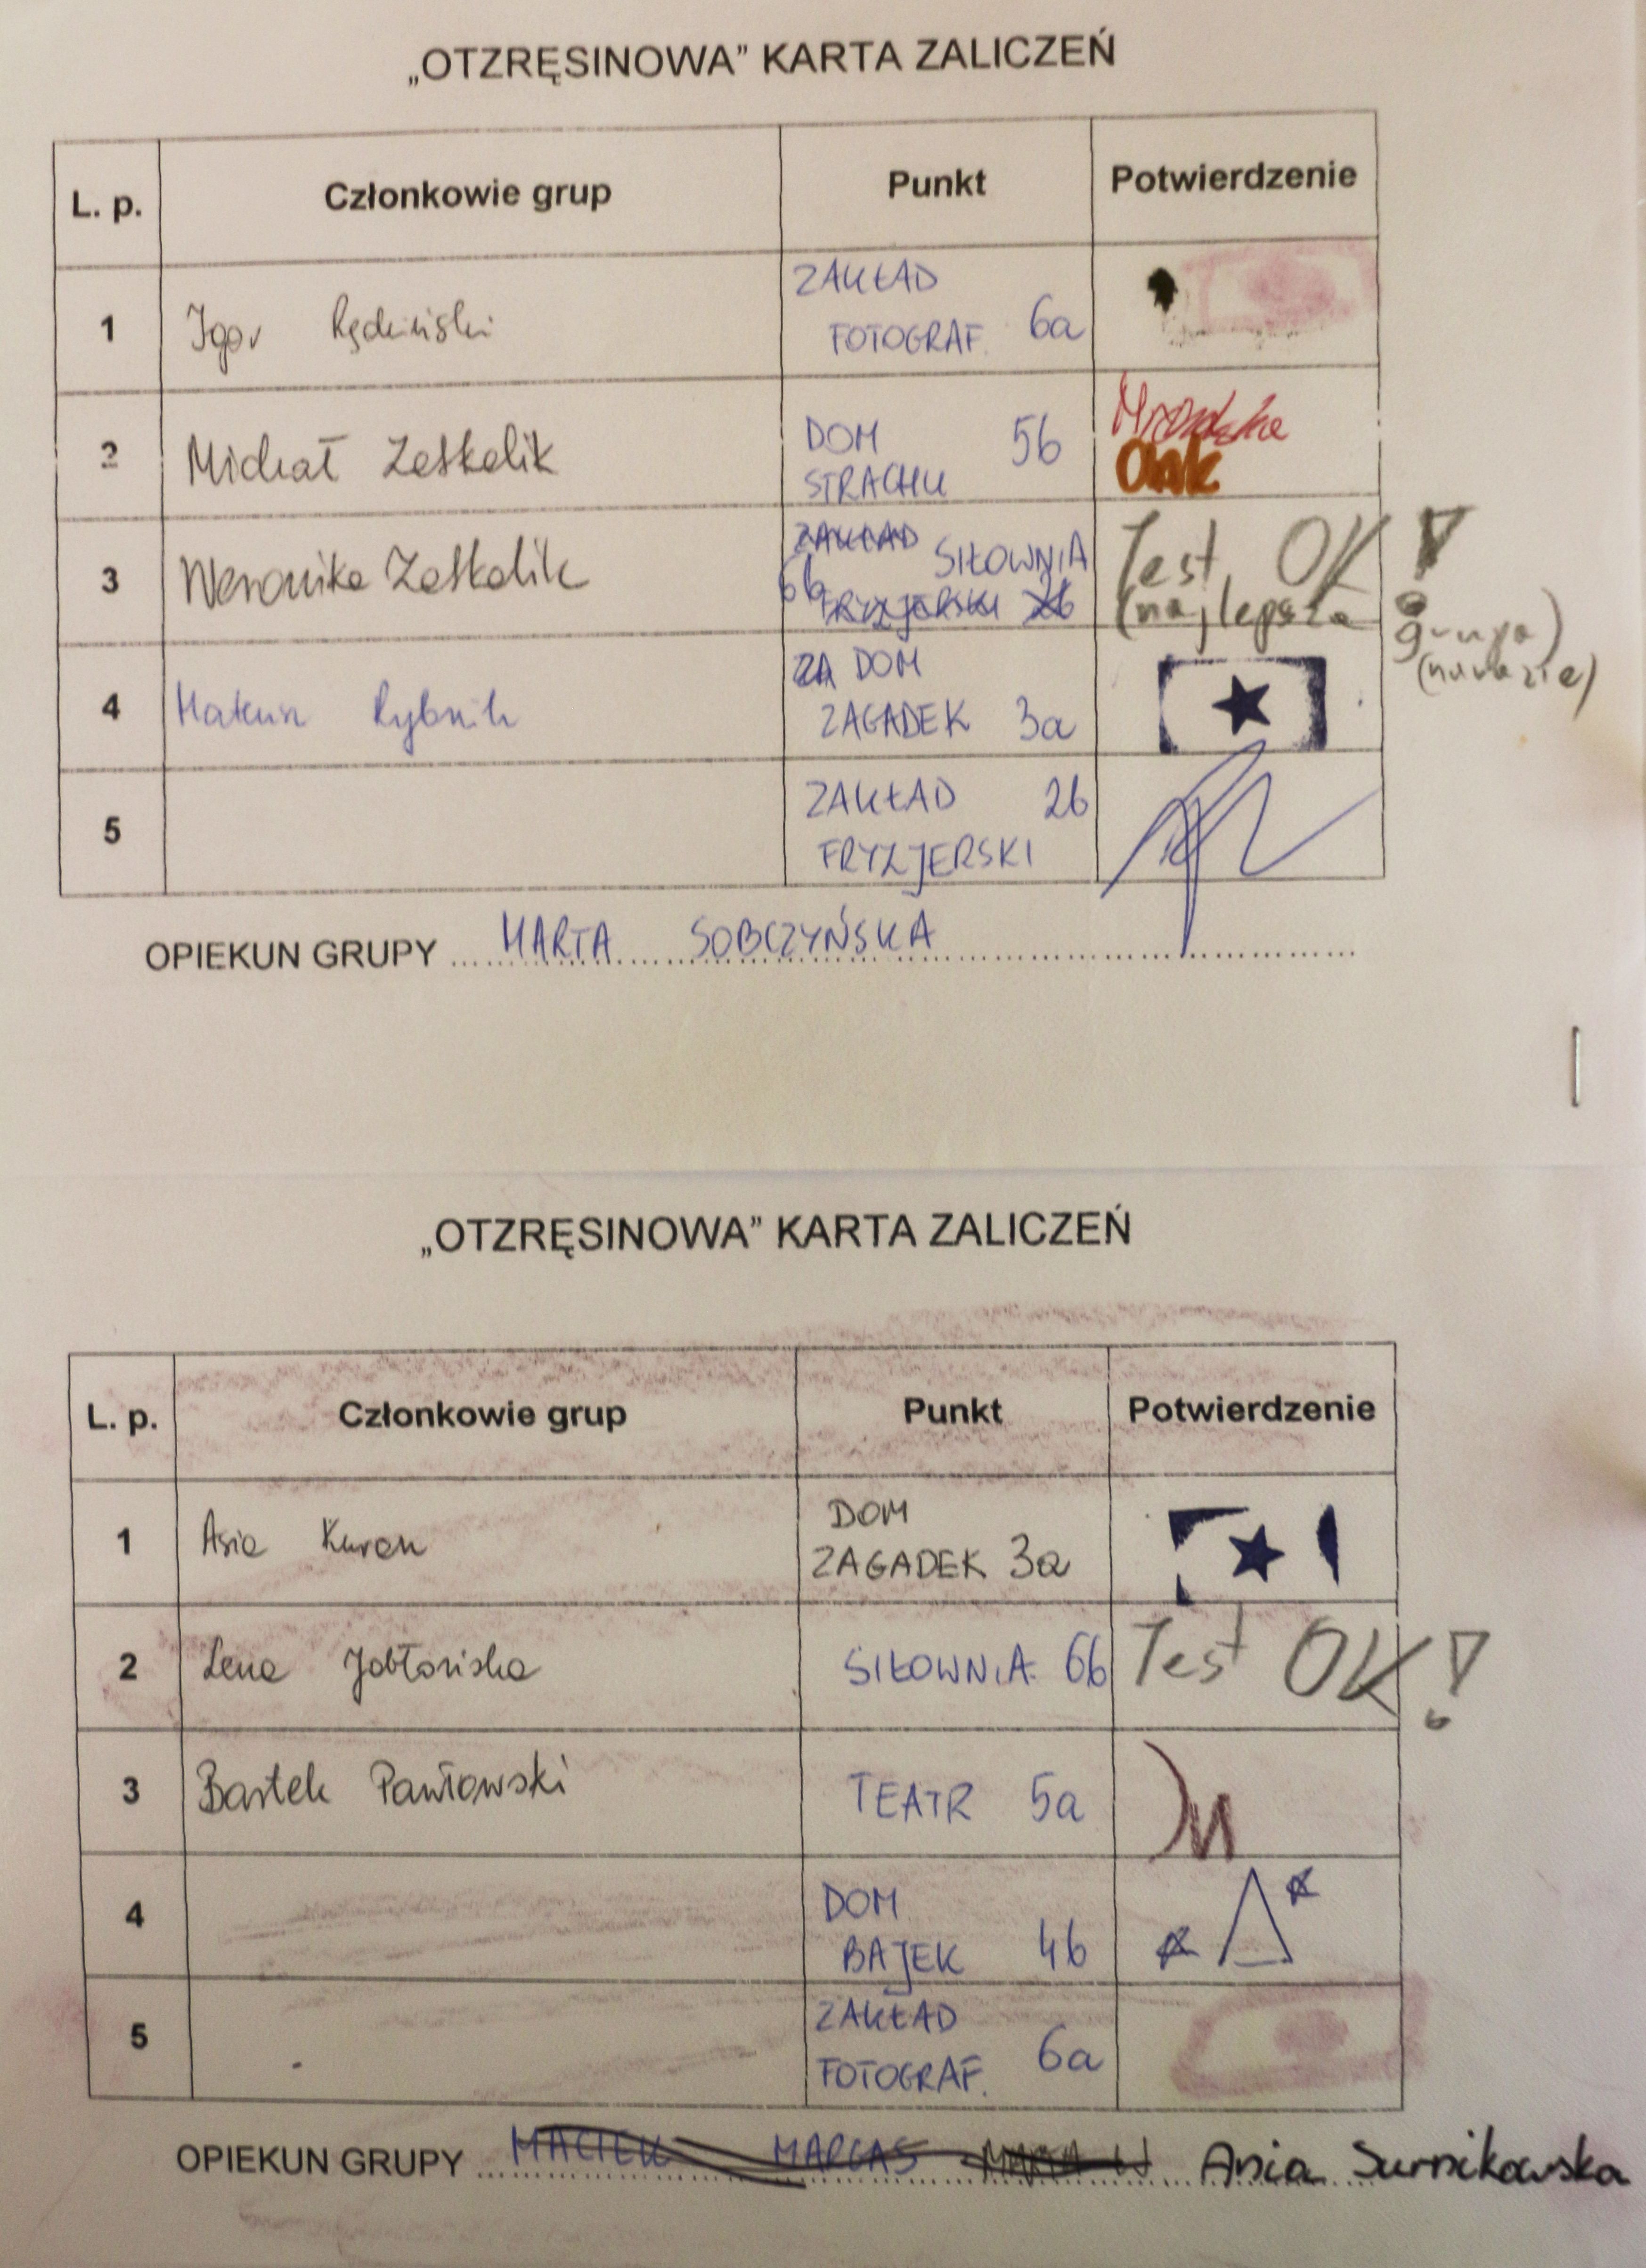 „OTZRĘSINOWA” KARTA ZALICZEŃ
L. p. Członkowie grup Punkt Potwierdzenie
1 Igor ZAKŁAD
FOTOGRAF. 6a
2 Michał DOM 5b
STRACHU
3 Weronika ZAKŁAD SIŁOWNIA Test OK!
6b FRYZJERSKI 2b (najlepsza grupa)
(na razie)
4 Mateusz Rybnik ZA DOM
ZAGADEK 3a
5 ZAKŁAD 2b
FRYZJERSKI
OPIEKUN GRUPY MARTA SOBCZYŃSKA
„OTZRĘSINOWA” KARTA ZALICZEŃ
L. p. Członkowie grup Punkt Potwierdzenie
1 Asia DOM
ZAGADEK 3a
2 Lena Jabłońska SIŁOWNIA 6b Test OK!
3 Bartek Pawłowski TEATR 5a
4 DOM
BAJEK 4b
5 ZAKŁAD
FOTOGRAF. 6a
OPIEKUN GRUPY MACIEK MARGAS Ania Surnikowska